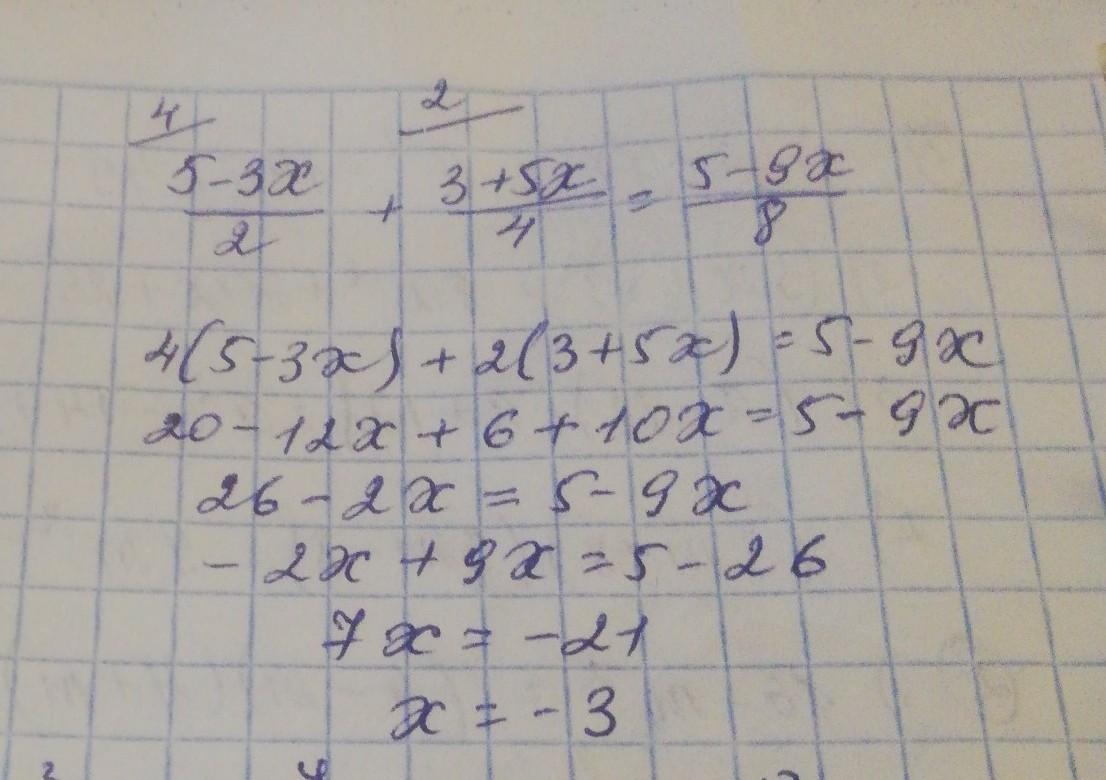 4 2
5-3x/2 + 3+5x/4 = 5-9x/8
4(5-3x) + 2(3+5x) = 5-9x
20-12x + 6 + 10x = 5-9x
26-2x = 5-9x
-2x + 9x = 5-26
7x = -21
x = -3